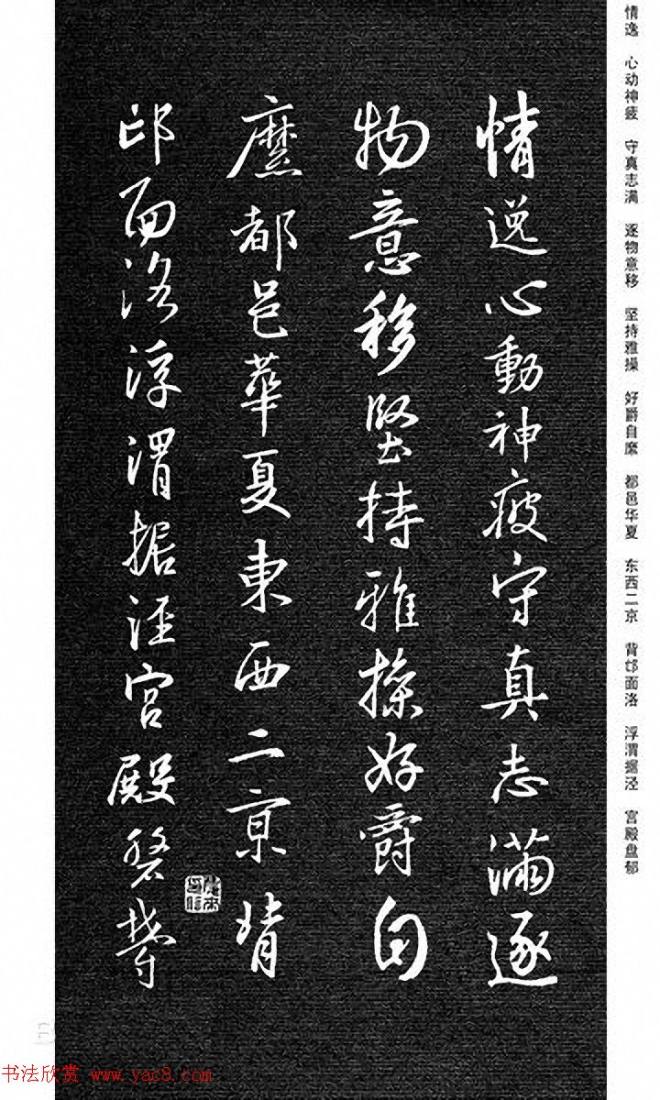 情逸心動神疲守真志滿逐
物意移堅持雅操好爵自
縻都邑華夏東西二京背
邙面洛浮渭据涇宮殿磐欝
情逸 心动神疲 守真志满 逐物意移 坚持雅操 好爵自縻 都邑华夏 东西二京 背邙面洛 浮渭据泾 宫殿盘郁
书法欣赏 www.yac8.com